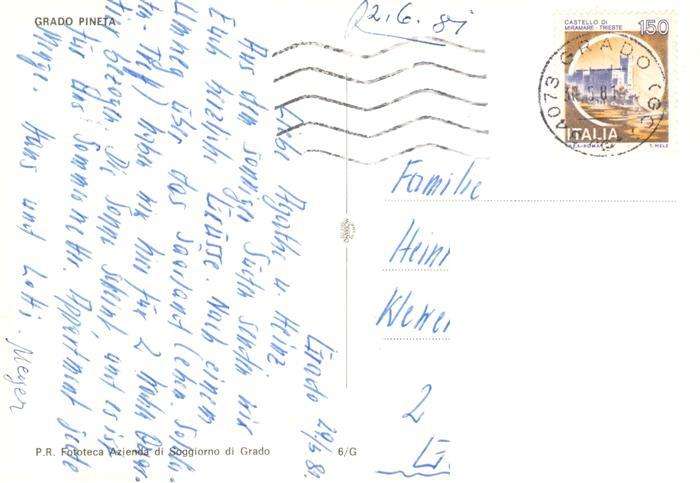 GRADO PINETA
R 2.6.81
CASTELLO DI
MIRAMARE - TRIESTE
150
ITALIA
T. MELE
34073 GRADO (GO)
Grado 29/5 81.
Liebe Agathe u. Heinz
Aus dem sonnigen Süden senden wir
Euch herzliche Grüsse. Nach einem
Umweg über das Saarland
haben wir hier für 2 Wochen
bezogen. Die Sonne scheint und es ist
für uns Sommerwetter. Appartment
Hans und Lotti. Meyer
Familie
Heini
2
P.R. Fototeca Azienda di Soggiorno di Grado
6/G